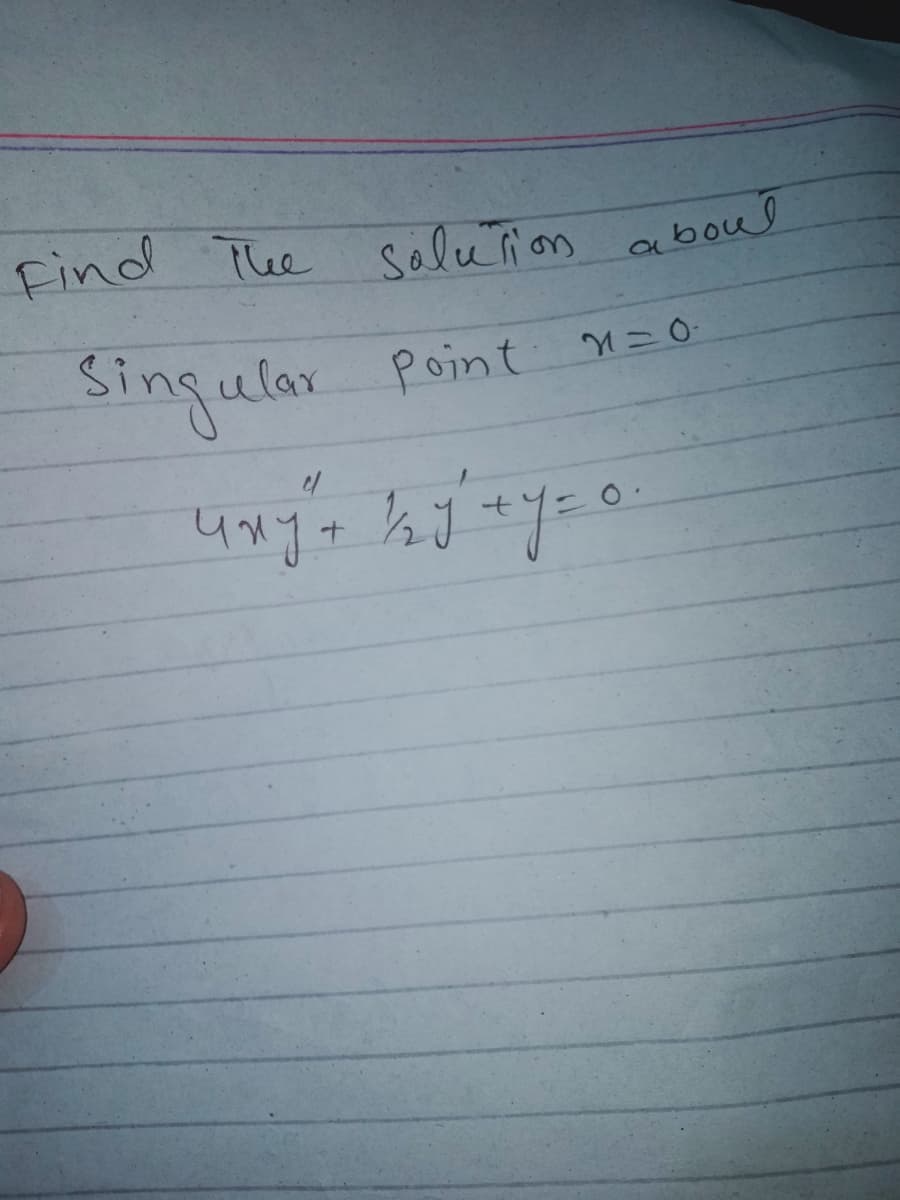 Find The solution about
Singular Point x=0.
4xy''+ 1/2 y'+y=0.